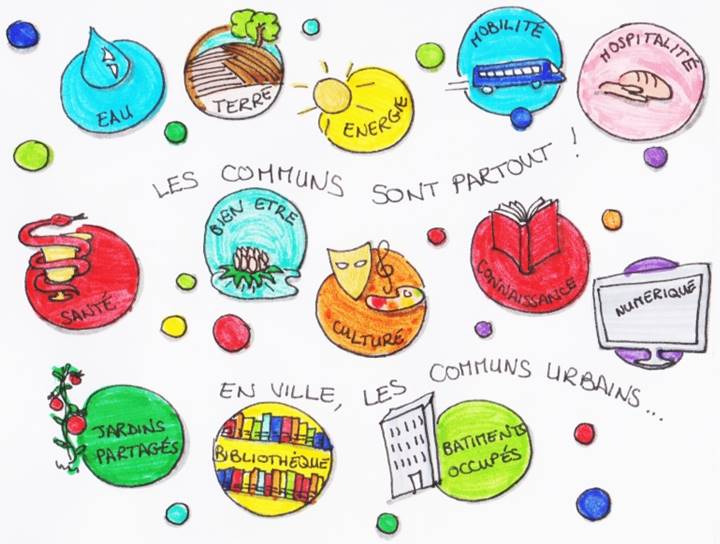 EAU
TERRE
ENERGIE
MOBILITÉ
HOSPITALITÉ
LES COMMUNS SONT PARTOUT !
SANTÉ
BIEN ETRE
CULTURE
CONNAISSANCE
NUMERIQUE
EN VILLE, LES COMMUNS URBAINS...
JARDINS
PARTAGÉS
BIBLIOTHÈQUE
BATIMENTS
OCCUPÉS